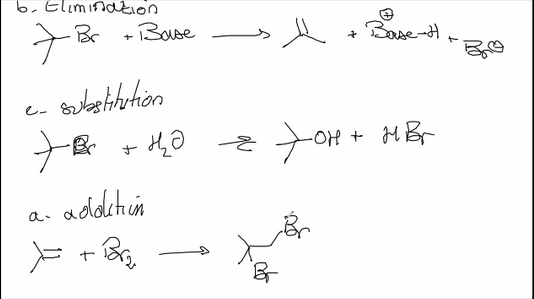 b. Elimination
Br + Base → + Base-H ⊕ + Br ⊖
c- substitution
Br + H₂O ⇌ OH + HBr
a- addition
+ Br₂ → Br
Br